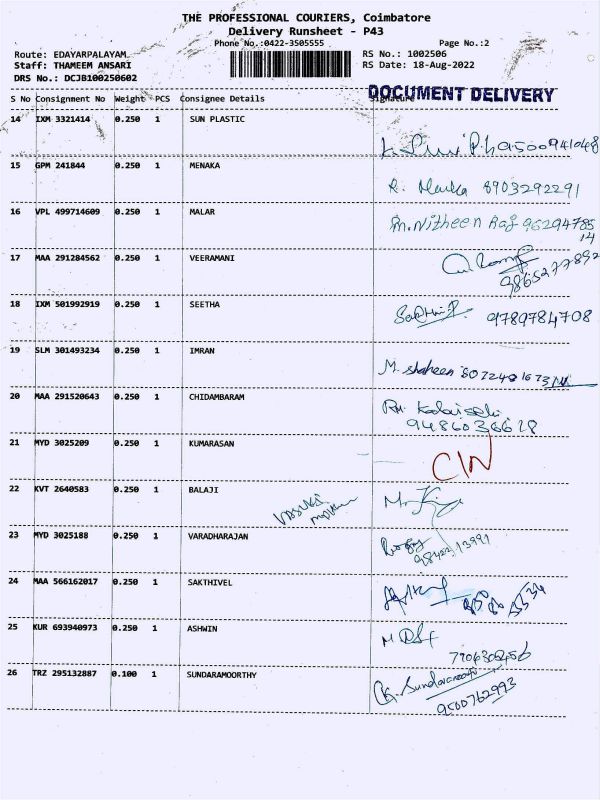 THE PROFESSIONAL COURIERS, Coimbatore
Delivery Runsheet - P43
Phone No.:0422-3505555
Page No.:2
Route: EDAYARPALAYAM
RS No.: 1002506
Staff: THAMEEM ANSARI
RS Date: 18-Aug-2022
DRS No.: DCJB100250602
DOCUMENT DELIVERY
S No Consignment No Weight PCS Consignee Details Signature
14 IXM 3321414 0.250 1 SUN PLASTIC
15 GPM 241844 0.250 1 MENAKA
R. Menka 8903292291
16 VPL 499714609 0.250 1 MALAR
M. Nitheen Raj 96294785
14
17 MAA 291284562 0.250 1 VEERAMANI
9865277892
18 IXM 501992919 0.250 1 SEETHA
9789784708
19 SLM 301493234 0.250 1 IMRAN
M. shaheen
20 MAA 291520643 0.250 1 CHIDAMBARAM
9486036628
21 MYD 3025209 0.250 1 KUMARASAN
C/N
22 KVT 2640583 0.250 1 BALAJI
23 MYD 3025188 0.250 1 VARADHARAJAN
24 MAA 566162017 0.250 1 SAKTHIVEL
25 KUR 693940973 0.250 1 ASHWIN
26 TRZ 295132887 0.100 1 SUNDARAMOORTHY
K. Sundaramoorthy
9500762993